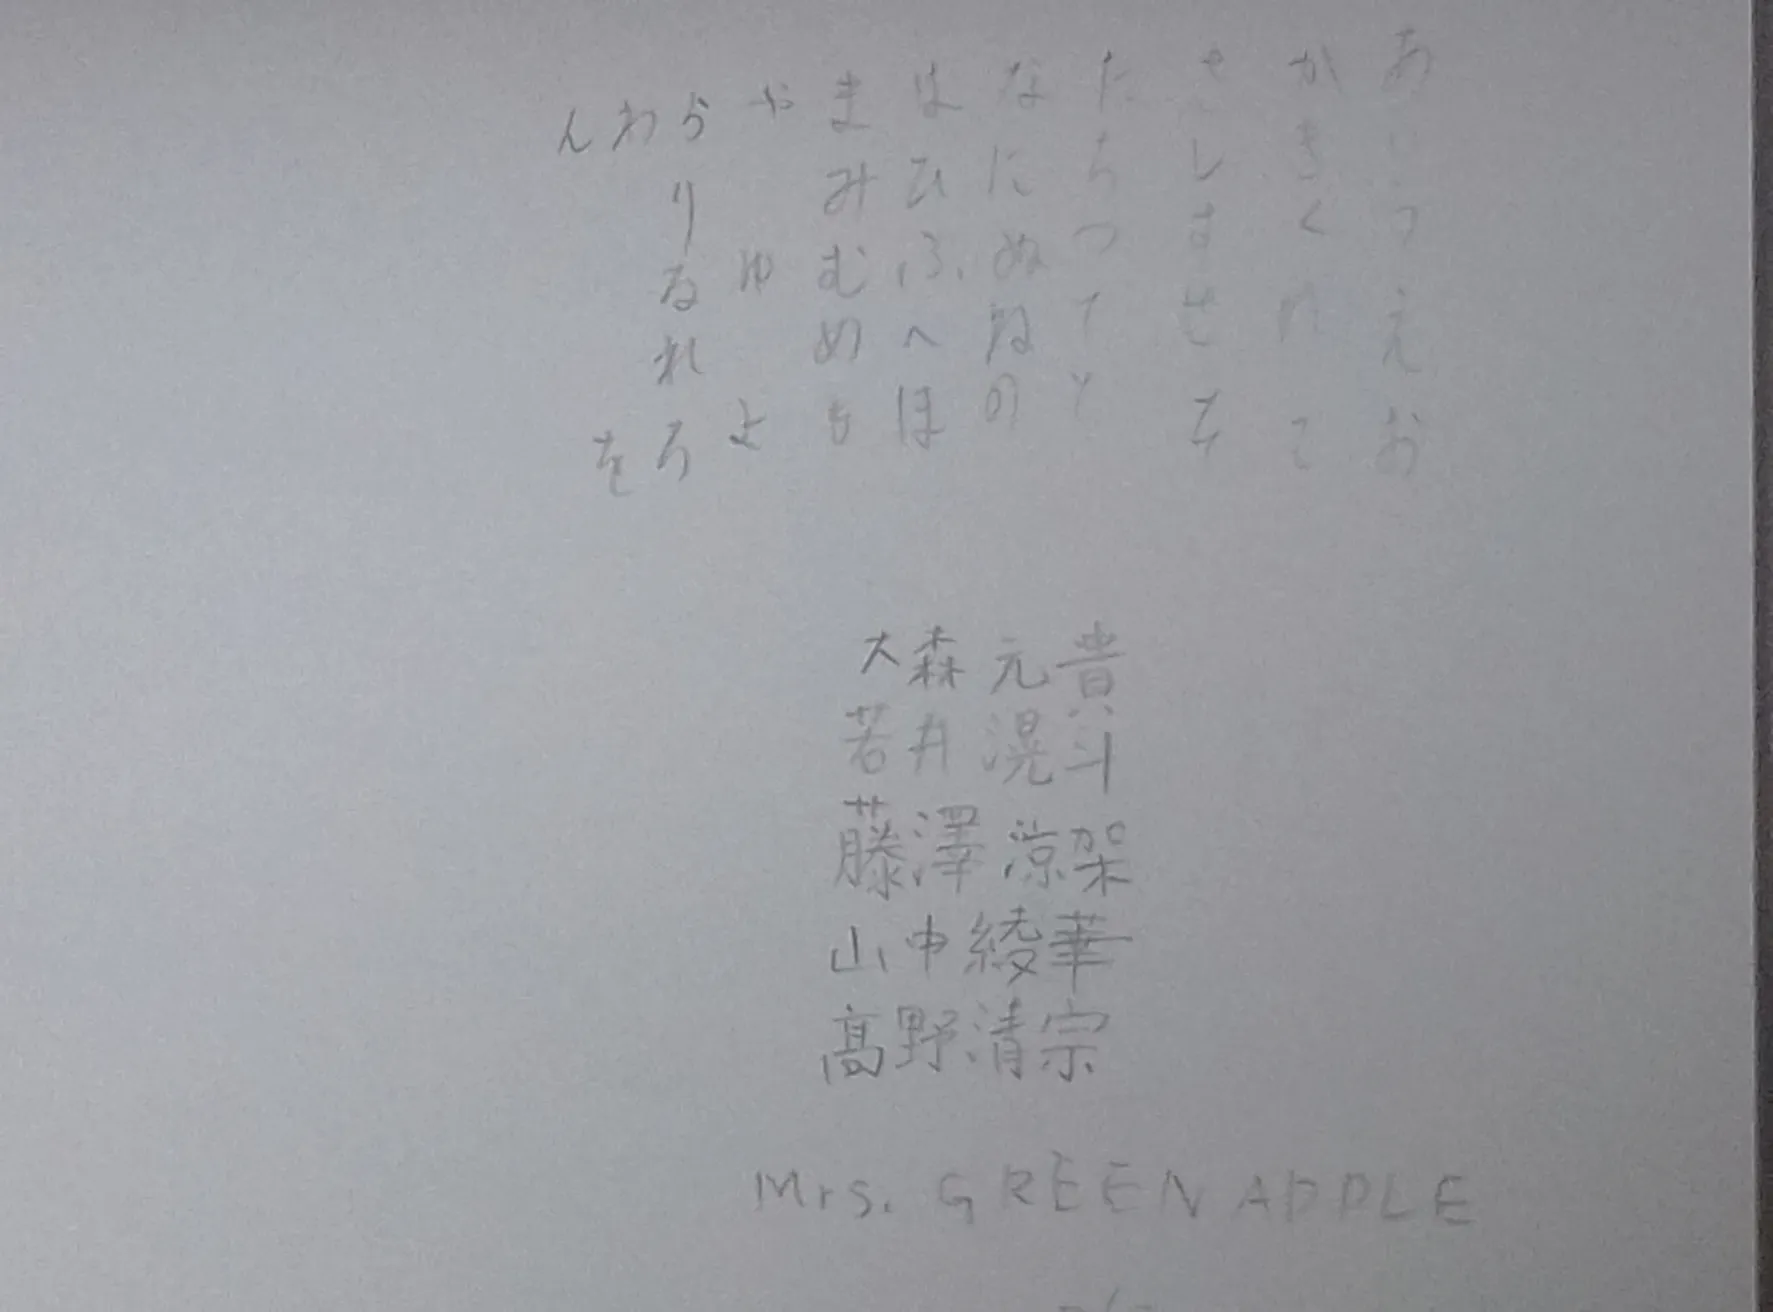 あいうえお
かきくけこ
さしすせそ
たちつてと
なにぬねの
はひふへほ
まみむめも
やゆよ
らりるれろ
わを
ん
大森元貴
若井滉斗
藤澤涼架
山中綾華
髙野清宗
Mrs. GREEN APPLE